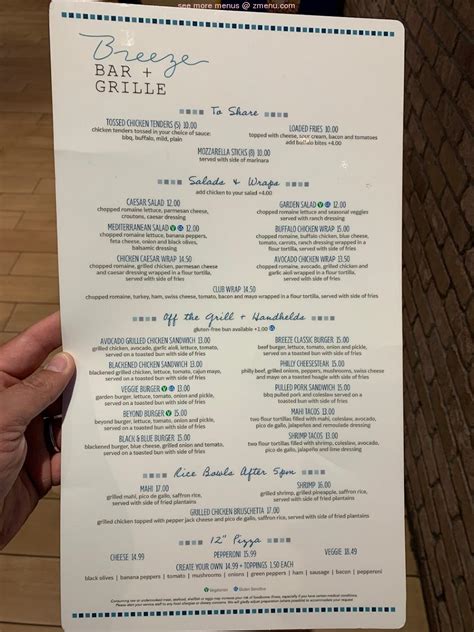 see more menus @ zmenu.com
Breeze
BAR +
GRILLE
To Share
TOSSED CHICKEN TENDERS (5) 10.00
chicken tenders tossed in your choice of sauce:
bbq, buffalo, mild, plain
LOADED FRIES 10.00
topped with cheese, sour cream, bacon and tomatoes
add buffalo bites +4.00
MOZZARELLA STICKS (8) 10.00
served with side of marinara
Salads & Wraps
add chicken to your salad +4.00
CAESAR SALAD 12.00
chopped romaine lettuce, parmesan cheese,
croutons, caesar dressing
GARDEN SALAD 12.00
chopped romaine lettuce and seasonal veggies
served with ranch dressing
MEDITERRANEAN SALAD 12.00
chopped romaine lettuce, banana peppers,
feta cheese, onion and black olives,
balsamic dressing
BUFFALO CHICKEN WRAP 15.00
chopped romaine, buffalo chicken, blue cheese,
tomato, carrots, ranch dressing wrapped in a
flour tortilla, served with side of fries
CHICKEN CAESAR WRAP 14.50
chopped romaine, grilled chicken, parmesan cheese
and caesar dressing wrapped in a flour tortilla,
served with side of fries
AVOCADO CHICKEN WRAP 13.50
chopped romaine, avocado, grilled chicken and
garlic aioli wrapped in a flour tortilla,
served with side of fries
CLUB WRAP 14.50
chopped romaine, turkey, ham, swiss cheese, tomato, bacon and mayo wrapped in a flour tortilla, served with side of fries
Off the Grill + Handhelds
gluten-free bun available +1.00
AVOCADO GRILLED CHICKEN SANDWICH 13.00
grilled chicken, avocado, garlic aioli, lettuce, tomato,
served on a toasted bun with side of fries
BREEZE CLASSIC BURGER 15.00
beef burger, lettuce, tomato, onion and pickle,
served on a toasted bun with side of fries
BLACKENED CHICKEN SANDWICH 13.00
blackened grilled chicken, lettuce, tomato, cajun mayo,
served on a toasted bun with side of fries
PHILLY CHEESESTEAK 15.00
philly beef, grilled onions, peppers, mushrooms, swiss cheese
and mayo on a toasted bun with side of fries
VEGGIE BURGER 13.00
garden burger, lettuce, tomato, onion and pickle,
served on a toasted bun with side of fries
PULLED PORK SANDWICH 15.00
bbq pulled pork and coleslaw served on
a toasted bun with side of fries
BEYOND BURGER 15.00
beyond burger, lettuce, tomato, onion and pickle,
served on a toasted bun with side of fries
MAHI TACOS 13.00
two flour tortillas filled with mahi, coleslaw, avocado,
pico de gallo, jalapeños and remoulade dressing
BLACK & BLUE BURGER 15.00
blackened burger, blue cheese, grilled onion and tomato,
served on a toasted bun with side of fries
SHRIMP TACOS 13.00
two flour tortillas filled with shrimp, coleslaw, avocado,
pico de gallo, jalapeños and
Rice Bowls After 5pm
MAHI 17.00
grilled mahi, pico de gallo, saffron rice,
served with side of fried plantains
SHRIMP 16.00
grilled shrimp, grilled pineapple, saffron rice,
served with side of fried plantains
GRILLED CHICKEN BRUSCHETTA 17.00
grilled chicken topped with pepper jack cheese and pico de gallo, saffron rice, served with side of fried plantains
12" Pizza
CHEESE 14.99
PEPPERONI 15.99
VEGGIE 18.49
CREATE YOUR OWN 14.99 + TOPPINGS 1.50 EACH
black olives | banana peppers | tomato | mushrooms | onions | green peppers | ham | sausage | bacon | pepperoni
Vegetarian Gluten Sensitive